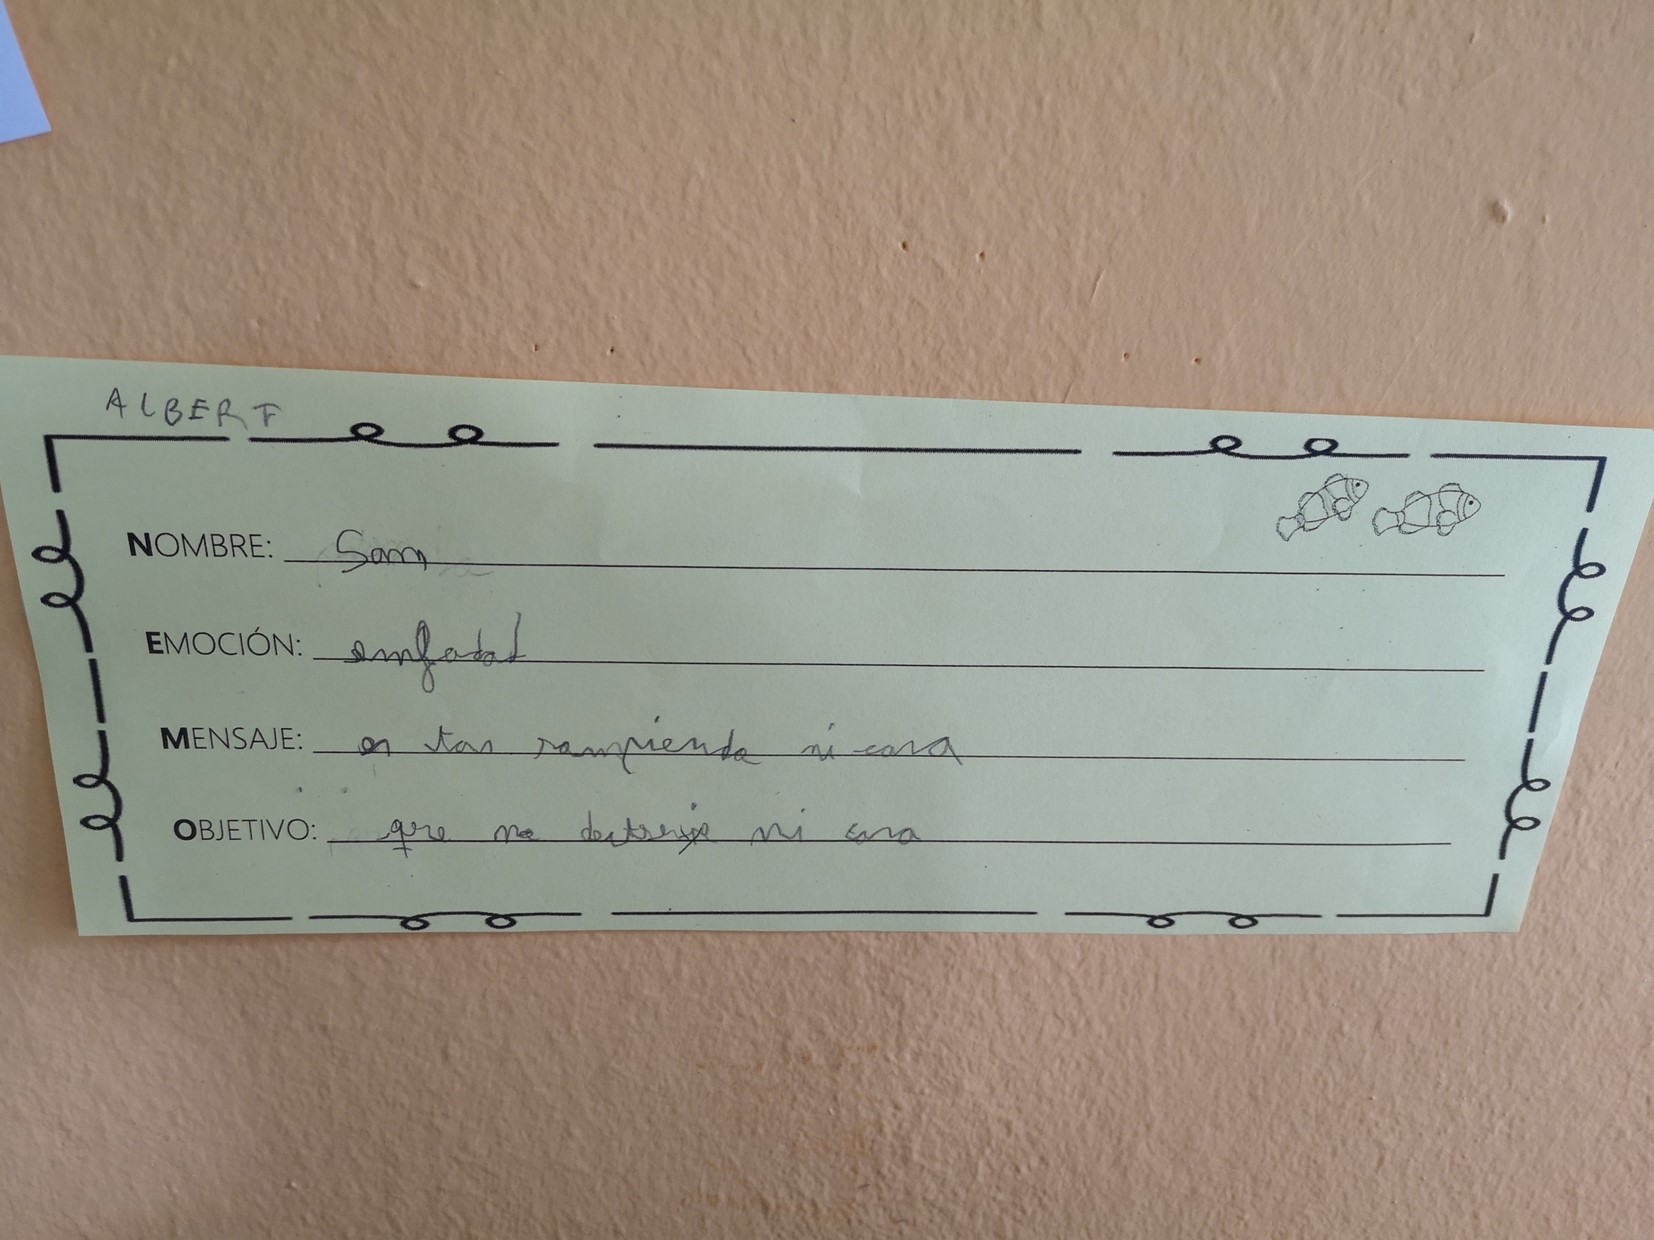 ALBERT
NOMBRE: Sam
EMOCIÓN: enfadad
MENSAJE: en tas rompienda mi casa
OBJETIVO: que no mi casa